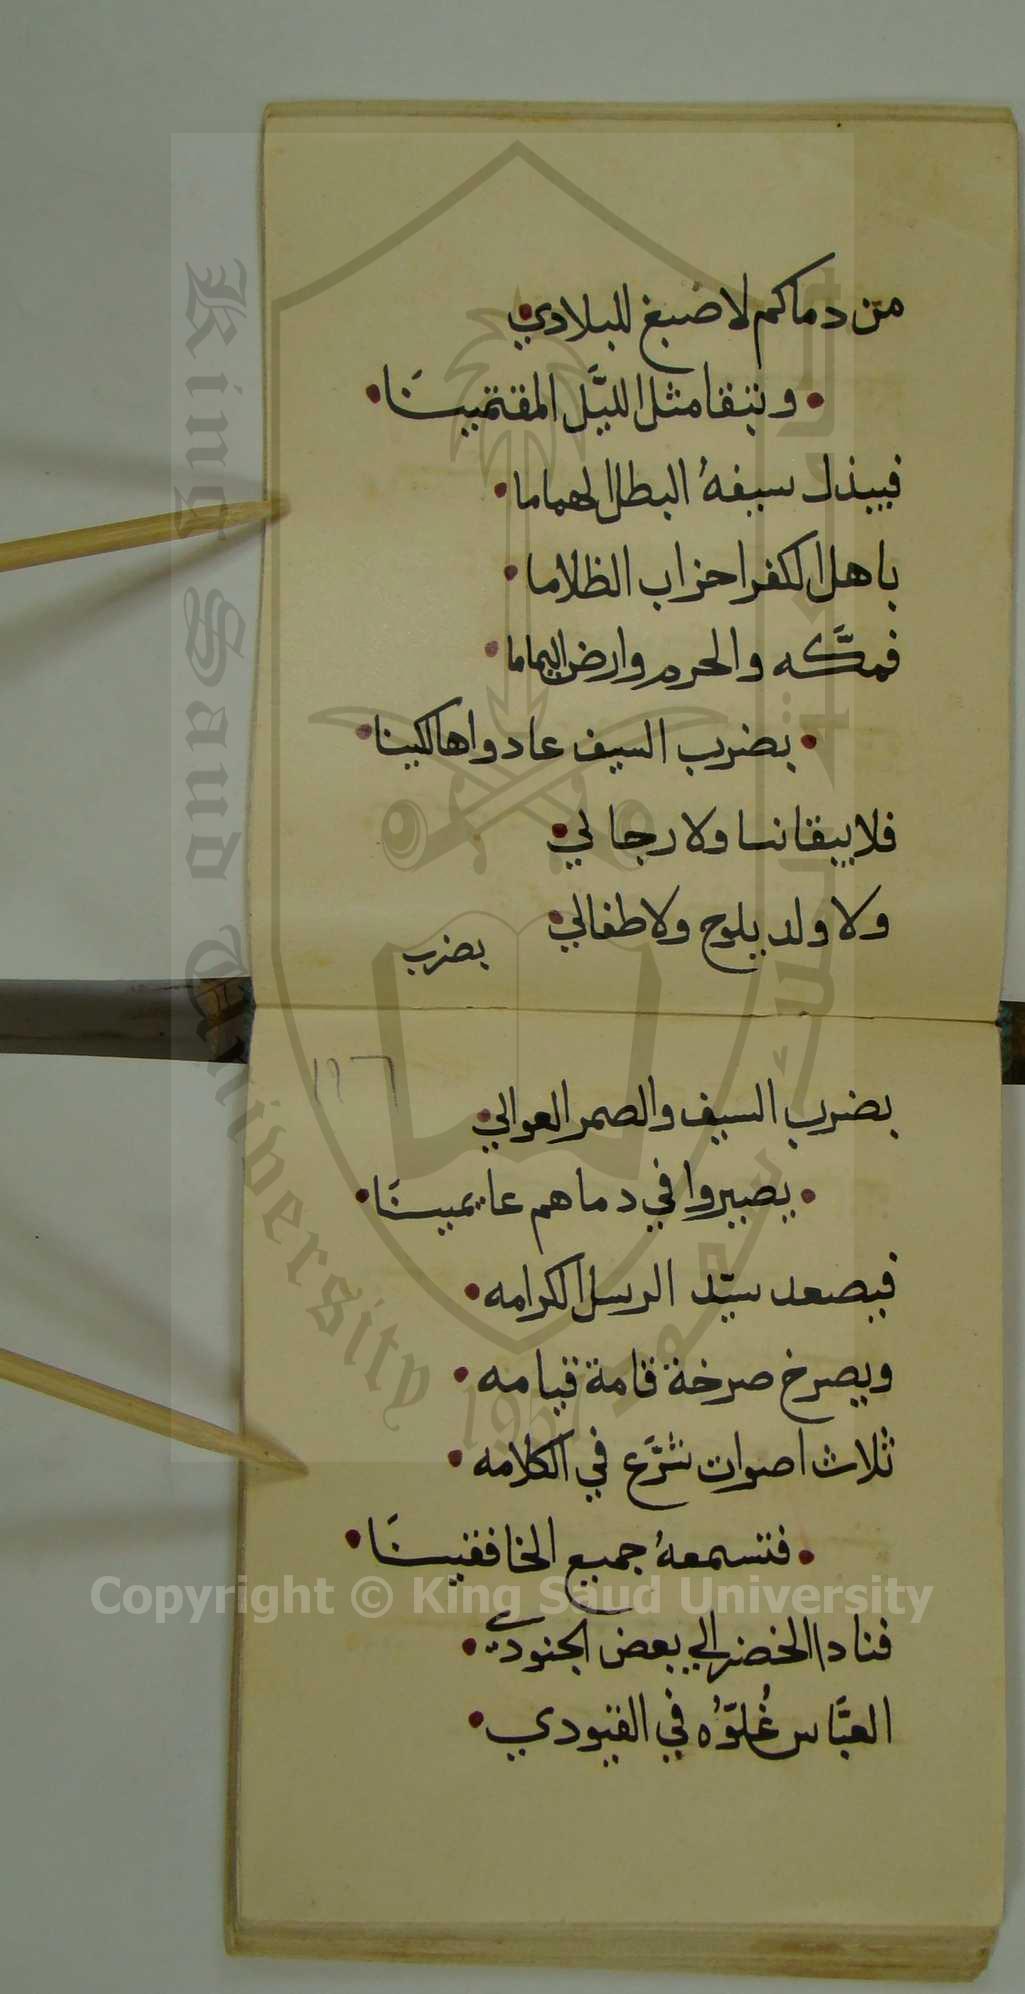 من دماكم لاصبغ للبلادي
وتبقا مثل الليَّل المقتميـنَا
فيبذل سيفهُ البطل الهماما
باهل الكفر احزاب الظلاما
فمكَّه والحرم وارض اليماما
بضرب السيف عادوا هالكينا
فلا يبقا نسا ولا رجالي
ولا ولد يلوح ولا طفالي
بضرب
١٩٦
بضرب السيف والصمر العوالي
يصيروا في دماهم عايمينَا
فيصعد سيّد الرسل الكرامه
ويصرخ صرخة قامة قيامه
ثلاث اصوات تشرَّع في الكلامه
فتسمعهُ جميع الخافقينَا
فنادا الخضر الى بعض الجنودي
العبَّاس غُلوّهُ في القيودي
King Saud University
1957
Copyright © King Saud University